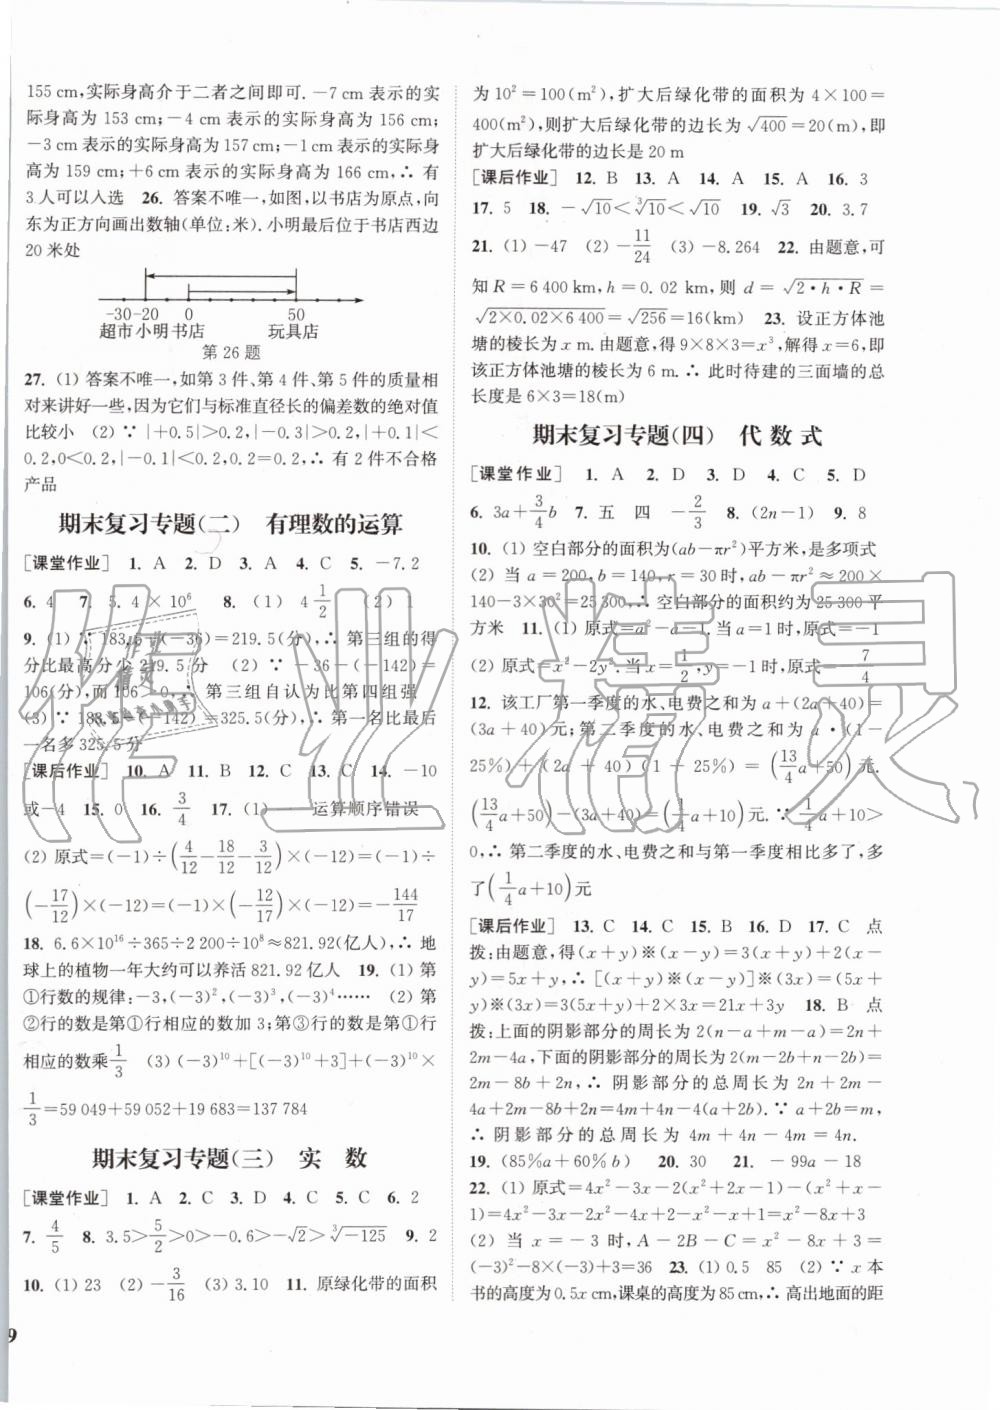 155 cm,实际身高介于二者之间即可.－7 cm 表示的实
际身高为 153 cm;－4 cm 表示的实际身高为 156 cm;
－3 cm 表示的实际身高为 157 cm;－1 cm 表示的实际身
高为 159 cm;＋6 cm 表示的实际身高为 166 cm,∴ 有
3 人可以入选 26. 答案不唯一,如图,以书店为原点,向
东为正方向画出数轴(单位:米).小明最后位于书店西边
20 米处
-30 -20 0 50
超市 小明 书店 玩具店
第 26 题
27. (1) 答案不唯一,如第 3 件、第 4 件、第 5 件的质量相
对来讲好一些,因为它们与标准直径长的偏差数的绝对值
比较小 (2) ∵ |＋0.5|＞0.2,|－0.3|＞0.2,|＋0.1|＜
0.2,0＜0.2,|－0.1|＜0.2,0.2＝0.2,∴ 有 2 件不合格
产品
期末复习专题(二) 有理数的运算
[课堂作业] 1. A 2. D 3. A 4. C 5. －7.2
6. 4 7. 5.4×10⁶ 8. (1) 4 1/2 (2) 1
9. (1) ∵ 183.5－(－36)＝219.5(分),∴ 第三组的得
分比最高分少 219.5 分 (2) ∵ －36－(－142)＝
106(分),而 106＞0,∴ 第三组自认为比第四组强
(3) ∵ 183.5－(－142)＝325.5(分),∴ 第一名比最后
一名多 325.5 分
[课后作业] 10. A 11. B 12. C 13. C 14. －10
或－4 15. 0 16. 3/4 17. (1) 一 运算顺序错误
(2) 原式＝(－1)÷(4/12－18/12－3/12)×(－12)＝(－1)÷
(－17/12)×(－12)＝(－1)×(－12/17)×(－12)＝－144/17
18. 6.6×10¹⁶÷365÷2 200÷10⁸≈821.92(亿人),∴ 地
球上的植物一年大约可以养活 821.92 亿人 19. (1) 第
①行数的规律:－3,(－3)²,(－3)³,(－3)⁴…… (2) 第
②行的数是第①行相应的数加 3;第③行的数是第①行
相应的数乘 1/3 (3) (－3)¹⁰＋[(－3)¹⁰＋3]＋(－3)¹⁰×
1/3＝59 049＋59 052＋19 683＝137 784
期末复习专题(三) 实 数
[课堂作业] 1. A 2. C 3. D 4. C 5. C 6. 2
7. 4/5 8. 3.5＞5/2＞0＞－0.6＞－√2＞∛－125 9. 2
10. (1) 23 (2) －3/16 (3) 3.10 11. 原绿化带的面积
9
为 10²＝100(m²),扩大后绿化带的面积为 4×100＝
400(m²),则扩大后绿化带的边长为 √400＝20(m),即
扩大后绿化带的边长是 20 m
[课后作业] 12. B 13. A 14. A 15. A 16. 3
17. 5 18. －√10＜∛10＜√10 19. √3 20. 3.7
21. (1) －47 (2) －11/24 (3) －8.264 22. 由题意,可
知 R＝6 400 km,h＝0.02 km,则 d＝√2·h·R＝
√2×0.02×6 400＝√256＝16(km) 23. 设正方体池
塘的棱长为 x m.由题意,得 9×8×3＝x³,解得 x＝6,即
该正方体池塘的棱长为 6 m.∴ 此时待建的三面墙的总
长度是 6×3＝18(m)
期末复习专题(四) 代 数 式
[课堂作业] 1. A 2. D 3. D 4. C 5. D
6. 3a＋3/4b 7. 五 四 －2/3 8. (2n－1) 9. 8
10. (1) 空白部分的面积为(ab－πr²)平方米,是多项式
(2) 当 a＝200,b＝140,r＝30 时,ab－πr²≈200×
140－3×30²＝25 300,∴ 空白部分的面积约为 25 300 平
方米 11. (1) 原式＝a²－a－1.当 a＝1 时,原式＝－1
(2) 原式＝x²－2y².当 x＝1/2,y＝－1 时,原式＝－7/4
12. 该工厂第一季度的水、电费之和为 a＋(2a＋40)＝
(3a＋40)元;第二季度的水、电费之和为 a·(1＋
25%)＋(2a＋40)(1－25%)＝(11/4a＋30)元.
[课后作业] 13. C 14. C 15. B 16. D 17. C 点
拨:由题意,得(x＋y)※(x－y)＝3(x＋y)＋2(x－
y)＝5x＋y,∴ [(x＋y)※(x－y)]※(3x)＝(5x＋
y)※(3x)＝3(5x＋y)＋2×3x＝21x＋3y 18. B 点
拨:上面的阴影部分的周长为 2(n－a＋m－a)＝2n＋
2m－4a,下面的阴影部分的周长为 2(m－2b＋n－2b)＝
2m－8b＋2n,∴ 阴影部分的总周长为 2n＋2m－
4a＋2m－8b＋2n＝4m＋4n－4(a＋2b).∵ a＋2b＝m,
∴ 阴影部分的总周长为 4m＋4n－4m＝4n.
19. (85%a＋60%b) 20. 30 21. －99a－18
22. (1) 原式＝4x²－3x－2(x²＋2x－1)－(x²＋x－
1)＝4x²－3x－2x²－4x＋2－x²－x＋1＝x²－8x＋3
(2) 当 x＝－3 时,A－2B－C＝x²－8x＋3＝
(－3)²－8×(－3)＋3＝36 23. (1) 0.5 85 (2) ∵ x 本
书的高度为 0.5x cm,课桌的高度为 85 cm,∴ 高出地面的距